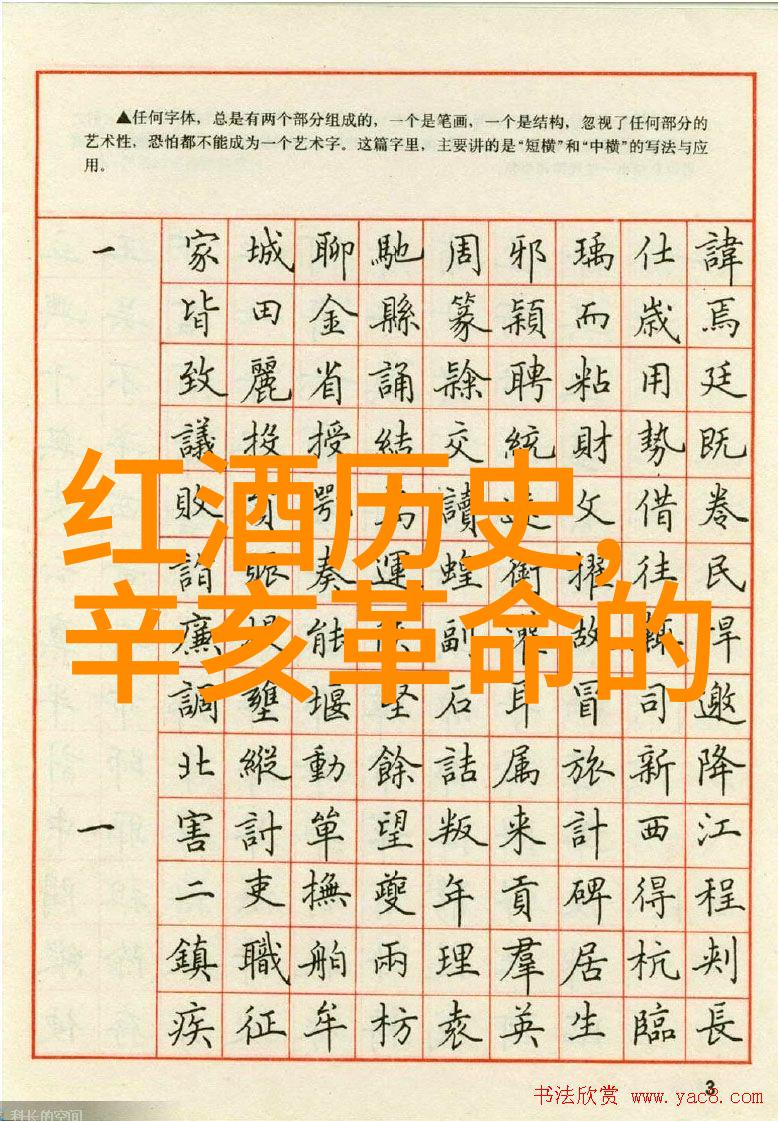 ▲任何字体，总是有两个部分组成的，一个是笔画，一个是结构，忽视了任何部分的
艺术性，恐怕都不能成为一个艺术字。这篇字里，主要讲的是“短横”和“中横”的写法与应
用。
一 家城聊馳周邪瑀仕諱
皆田金縣篆穎而歲焉
致麗省誦隸聘粘用廷
議投授結交統財勢既
敗鄂讀文借卷
红酒历史,
詣賑奏運蝗銜擢往民
辛亥革命的
廉能副故悍
調壅堰坚石耳冒司邀
北縱動餘詰属旅新降
一 害討單望叛来計西江
二吏撫夔年貢碑得程
鎮職舶兩理羣居杭刺
疾征牟枋袁英生臨長
3
书法欣赏 www.yac8.com
科长的空间